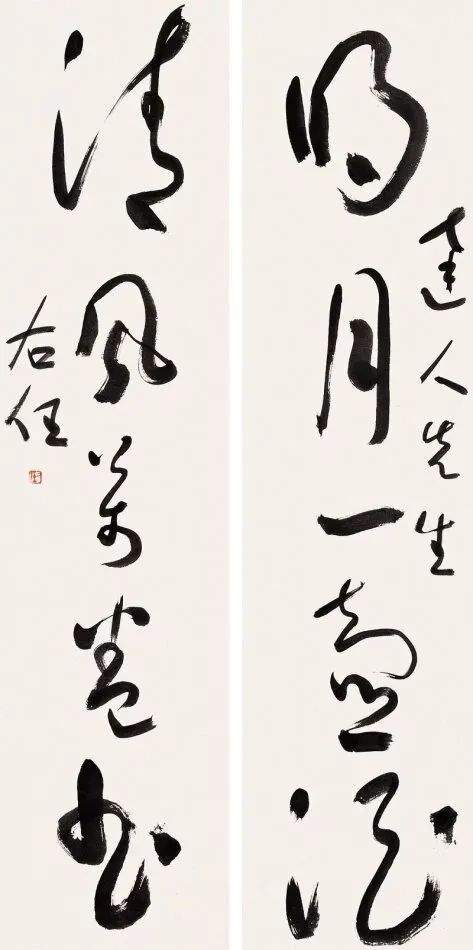 達人先生
明月一壺酒
清風萬卷書
右任